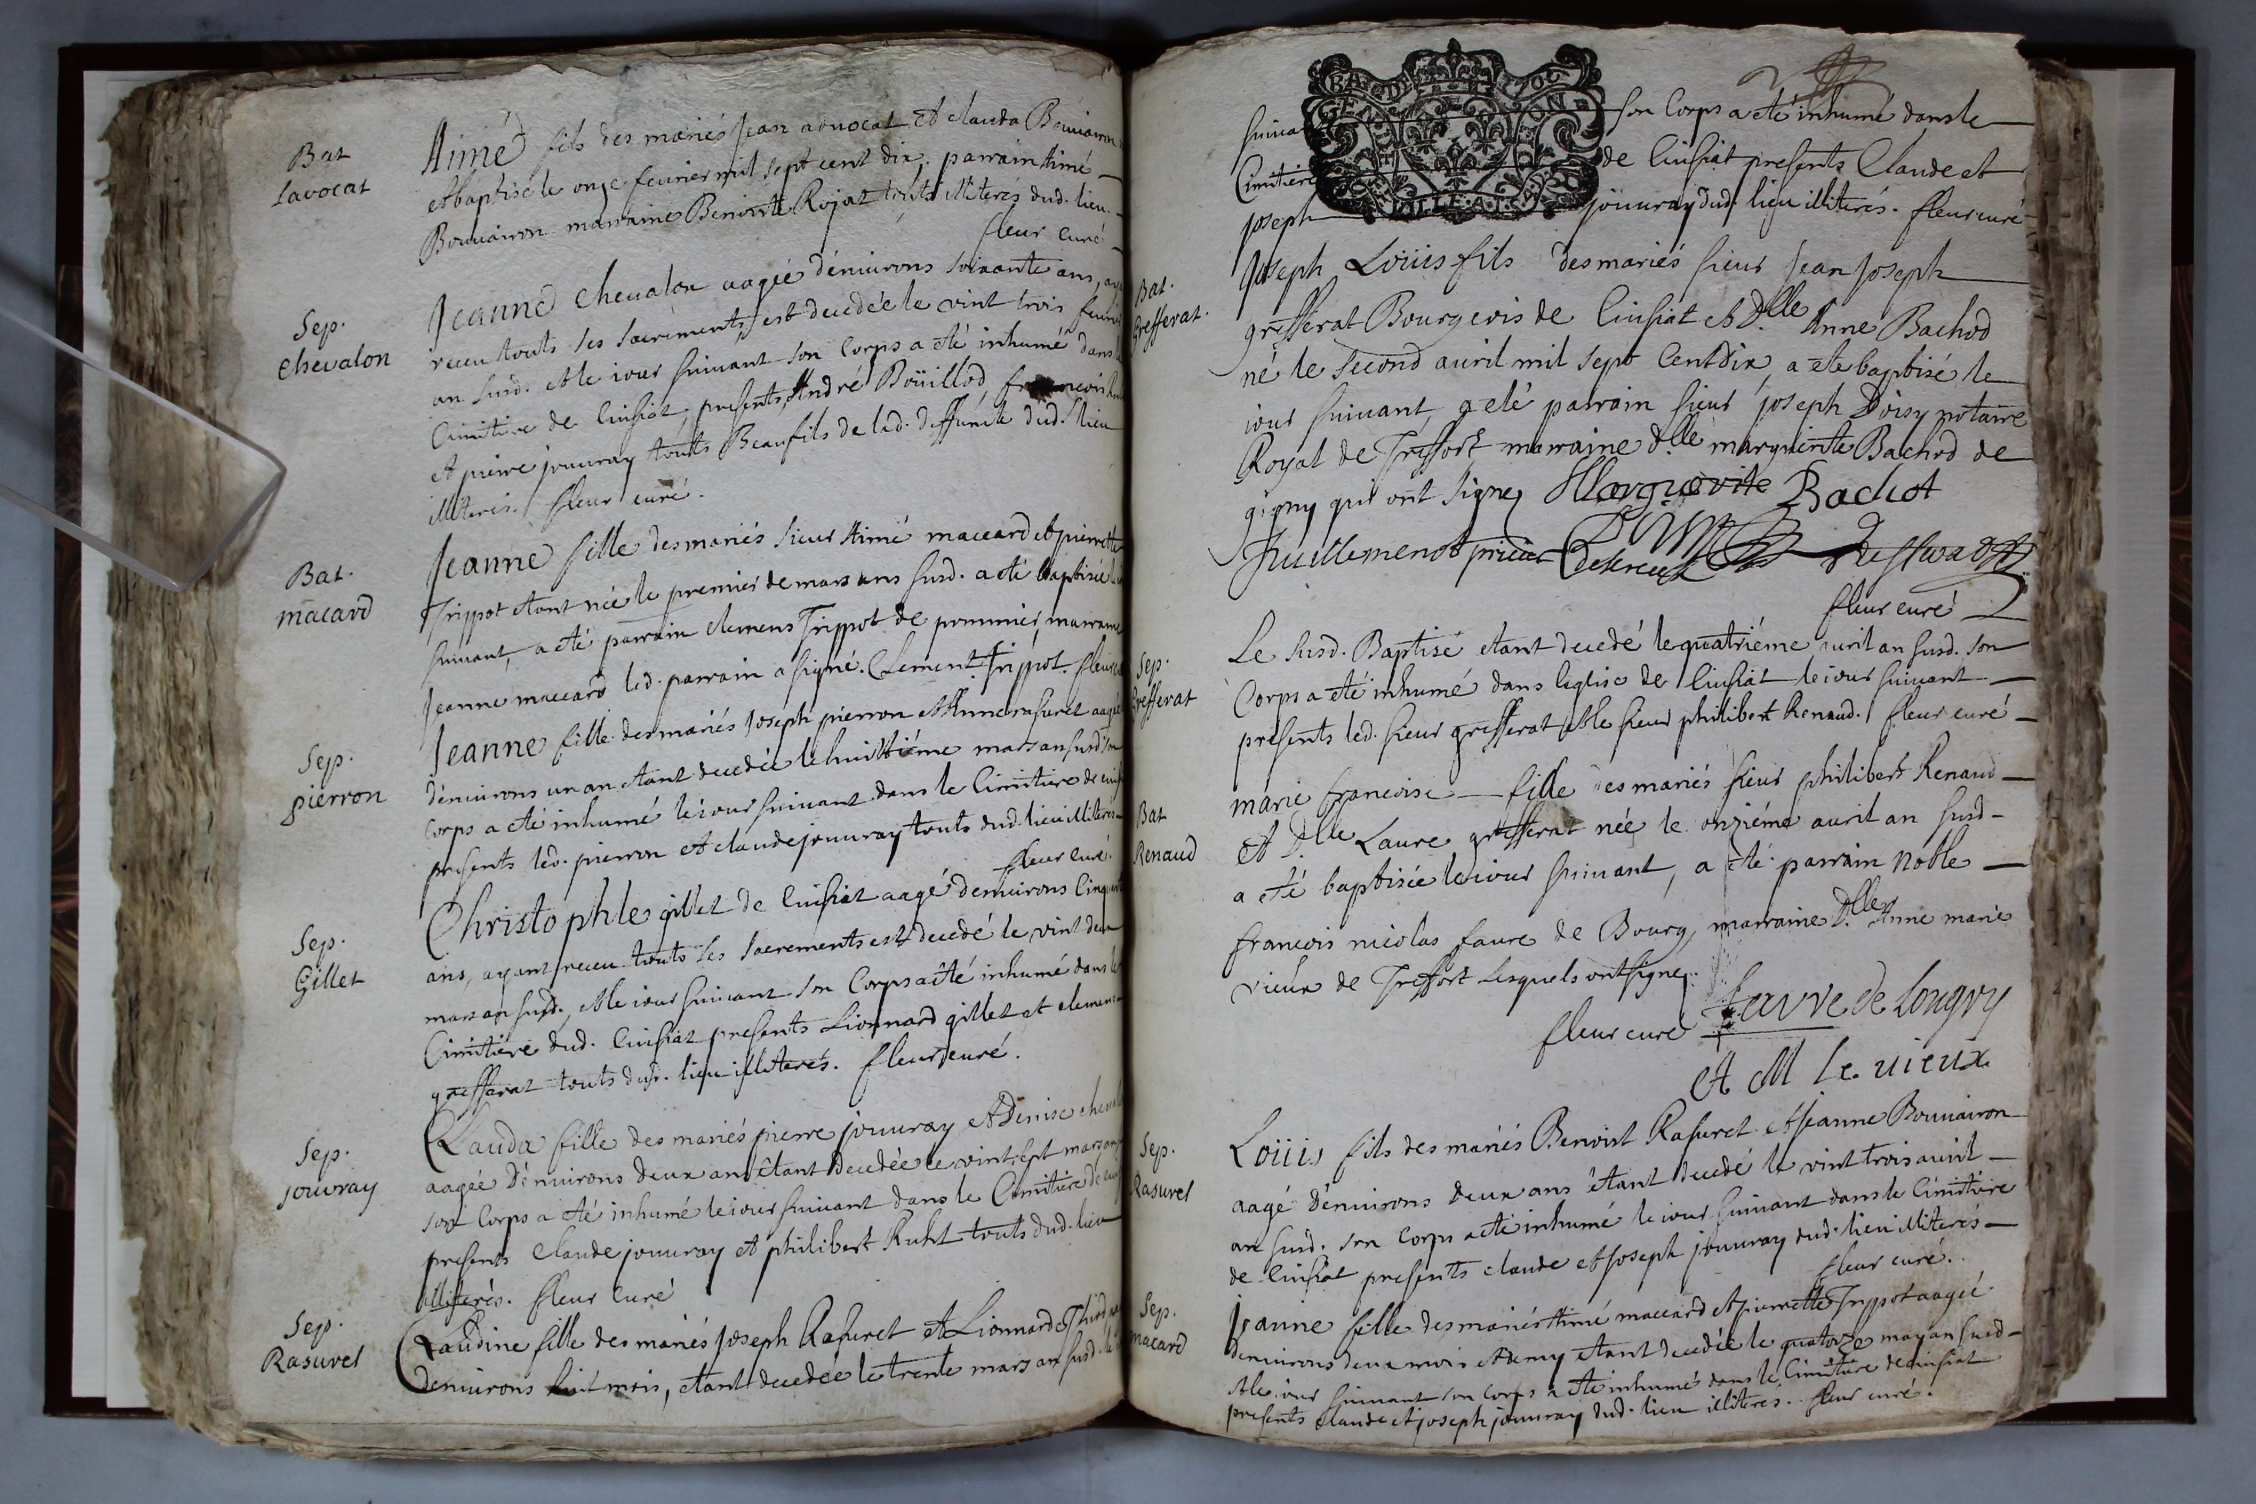 Bat
lavocat
Aimé fils des mariés Jean advocat et clauda Bouvairon
et baptisé le onze feurier mil sept cent dix. parrain Aimé
Bouuairon marraine Benoiste Rojat touts illiterés dud. lieu.
fleur curé
Sep.
chevalon
Jeanne chevalon aagée d'enuirons soixante ans,
receu touts ses sacrements, est decedée le vint trois feurier
an susd. et le iour suiuant son Corps a eté inhumé dans le
Cimitiere de Cuisiat, presents André Boüillod, francois
et pierre jouuray touts Beaufils de lad. deffunte dud. lieu
illiterés. fleur curé.
Bat.
macard
Jeanne fille des mariés sieur Aimé maccard et pierrette
Trippot etant née le premier de mars ans susd. a eté baptisée le
suiuant, a eté parrain clemens Trippot de pommier, marraine
Jeanne maccard led. parrain a signé. Clement Trippot. fleur
Sep.
pierron
Jeanne fille des mariés Joseph pierron et Anne rasuret aagée
d'enuirons un an etant decedée le huittiéme mars an susd son
Corps a eté inhumé le iour suiuant dans le Cimitiere de
presents led. pierron et claude jouuray touts dud. lieu illiterés
fleur curé.
Sep.
Gillet
Christophle gillet de Cuisiat aagé d'enuirons Cinquante
ans, ayant receu touts les sacrements est decedé le vint deux
mars an susd., et le iour suiuant son Corps a eté inhumé dans le
Cimitiere dud. Cuisiat presents Lionnard gillet et clemens
grefferat touts dud. lieu illiterés. fleur curé.
Sep.
jouvray
Clauda fille des mariés pierre jouuray et Denise
aagée d'enuirons deux ans étant decedée le vint sept mars an
son Corps a eté inhumé le iour suiuant dans le Cimitiere de
presents claude jouuray et philibert Ruht touts dud. lieu
illiterés. fleur Curé
Sep.
Rasuret
Claudine fille des mariés Joseph Rasuret et Lionnarde
d'enuirons huit mois, etant decedée le trente mars an susd.
suiuant son Corps a eté inhumé dans le
Cimitiere de Cuisiat presents Claude et
joseph jouuray dud. lieu illiterés. fleur curé
Bat.
Grefferat.
Joseph Loüis fils des mariés sieur Jean Joseph
grefferat Bourgeois de Cuisiat et D.lle Anne Bachod
né le second auril mil sept Cent dix, a ete baptisé le
iour suiuant, a eté parrain sieur joseph Doisy notaire
Royal de Treffort marraine d.lle marguerite Bachod de
gigny qui ont signez Marguerite Bachot
fleur curé
Sep.
Grefferat
Le susd. Baptisé etant decedé le quatriéme auril an susd. son
Corps a eté inhumé dans leglise de Cuisiat le iour suiuant
presents led. sieur grefferat et le sieur philibert Renaud. fleur curé
Bat
Renaud
marie francoise fille des mariés sieur philibert Renaud
et D.lle Laure grefferat née le onziéme auril an susd
a eté baptisée le iour suiuant, a eté parrain Noble
francois nicolas faure de Bourg, marraine D.lle Anne marie
vieux de Treffort lesquels ont signez.
fleur curé Favre de Longry
A M Le vieux
Sep.
Rasuret
Loüis fils des mariés Benoist Rasuret et Jeanne Bouuairon
aagé d'enuirons deux ans étant decedé le vint trois auril
an susd. son Corps a eté inhumé le iour suiuant dans le Cimitiere
de Cuisiat presents claude et Joseph jouuray dud. lieu illiterés
fleur curé.
Sep.
macard
Jeanne fille des mariés Aimé maccard et pierrette Trippot aagée
d'enuirons deux mois et demy etant decedée le quatorze may an susd
et le iour suiuant son Corps a eté inhumé dans le Cimitiere de Cuisiat
presents claude et joseph jouuray dud. lieu illiterés. fleur curé.